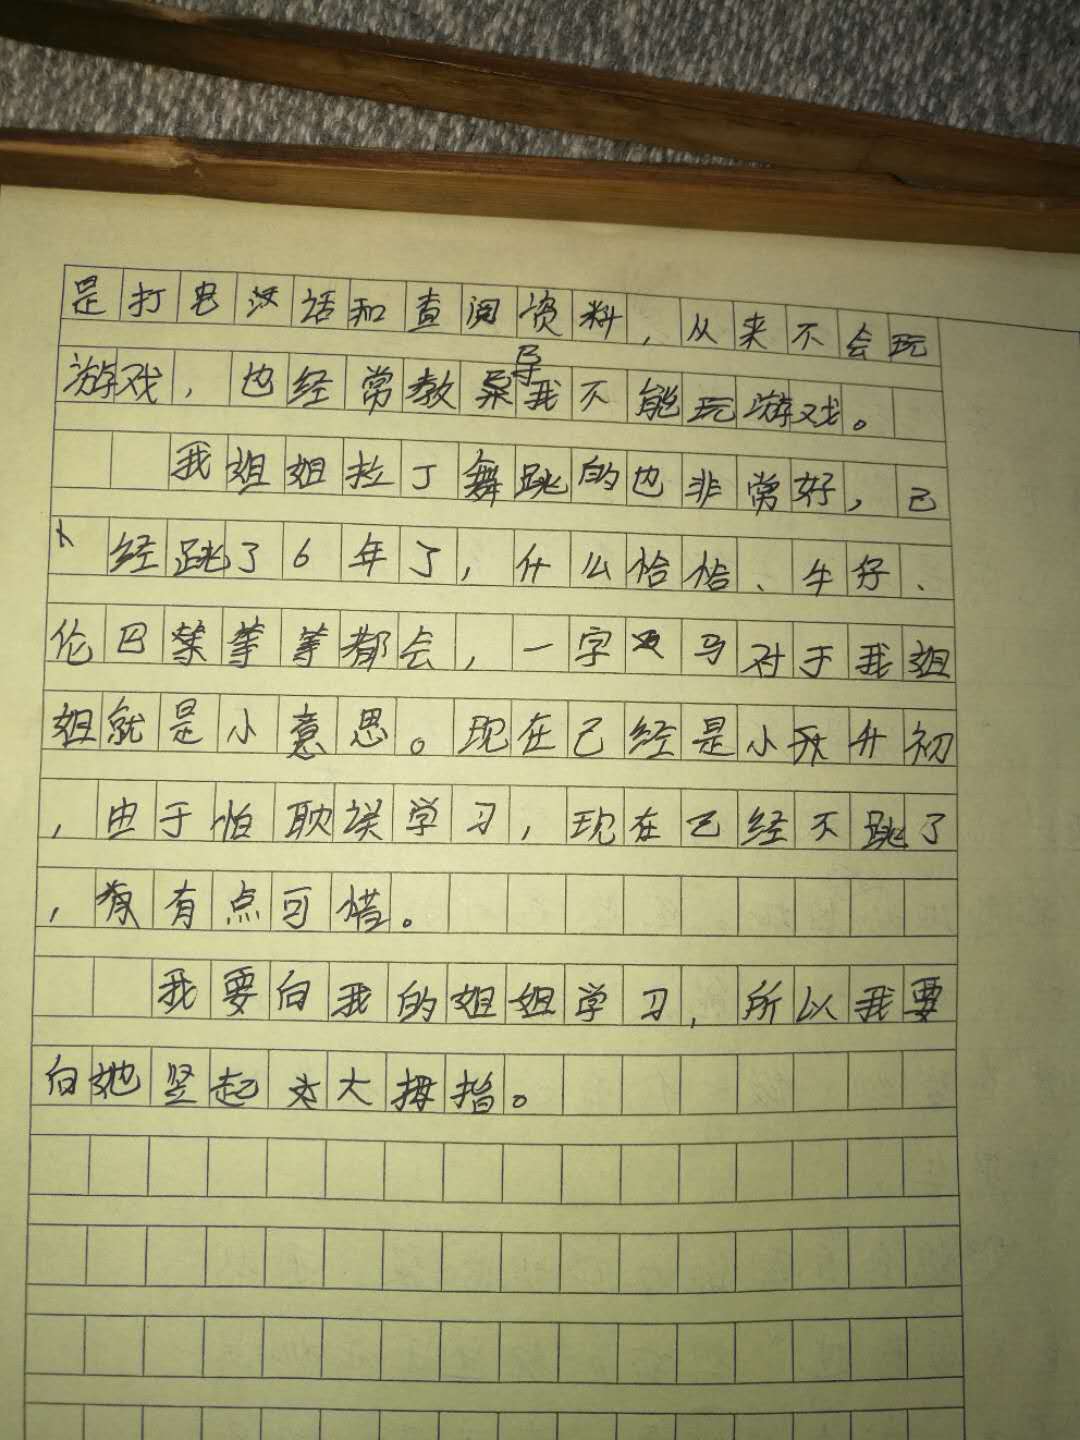 是打电话和查阅资料，从来不会玩
游戏，也经常教导我不能玩游戏。
我姐姐拉丁舞跳的也非常好，已
经跳了6年了，什么恰恰、牛仔、
伦巴等等都会，一字马对于我姐
姐就是小意思。现在已经是小升初
，由于怕耽误学习，现在已经不跳了
，有点可惜。
我要向我的姐姐学习，所以我要
向她竖起大拇指。